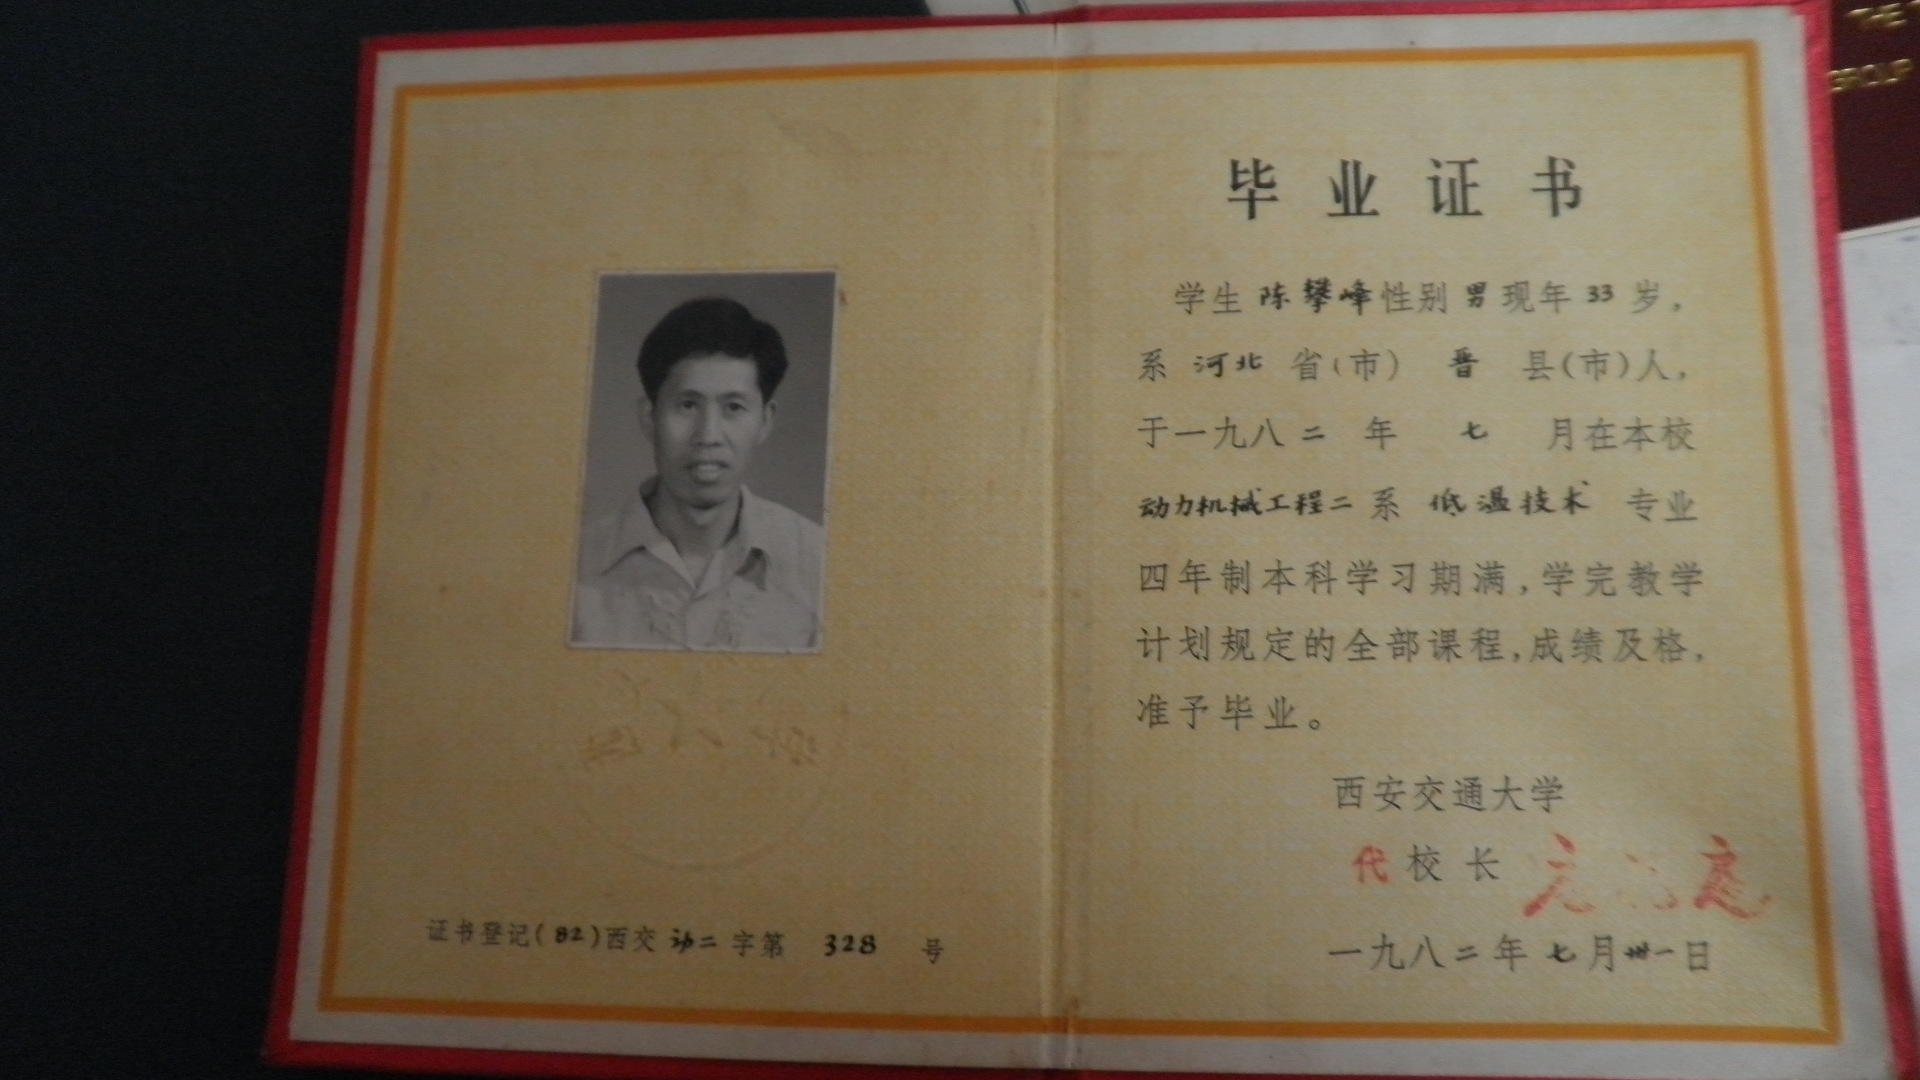 毕业证书
学生 陈攀峰 性别 男 现年 33 岁，
系 河北 省(市) 晋 县(市)人，
于一九八二年 七 月在本校
动力机械工程二系 低温技术 专业
四年制本科学习期满，学完教学
计划规定的全部课程，成绩及格，
准予毕业。
西安交通大学
代校长
一九八二年七月卅一日
证书登记(82)西交动二字第 328 号
THE
GROUP